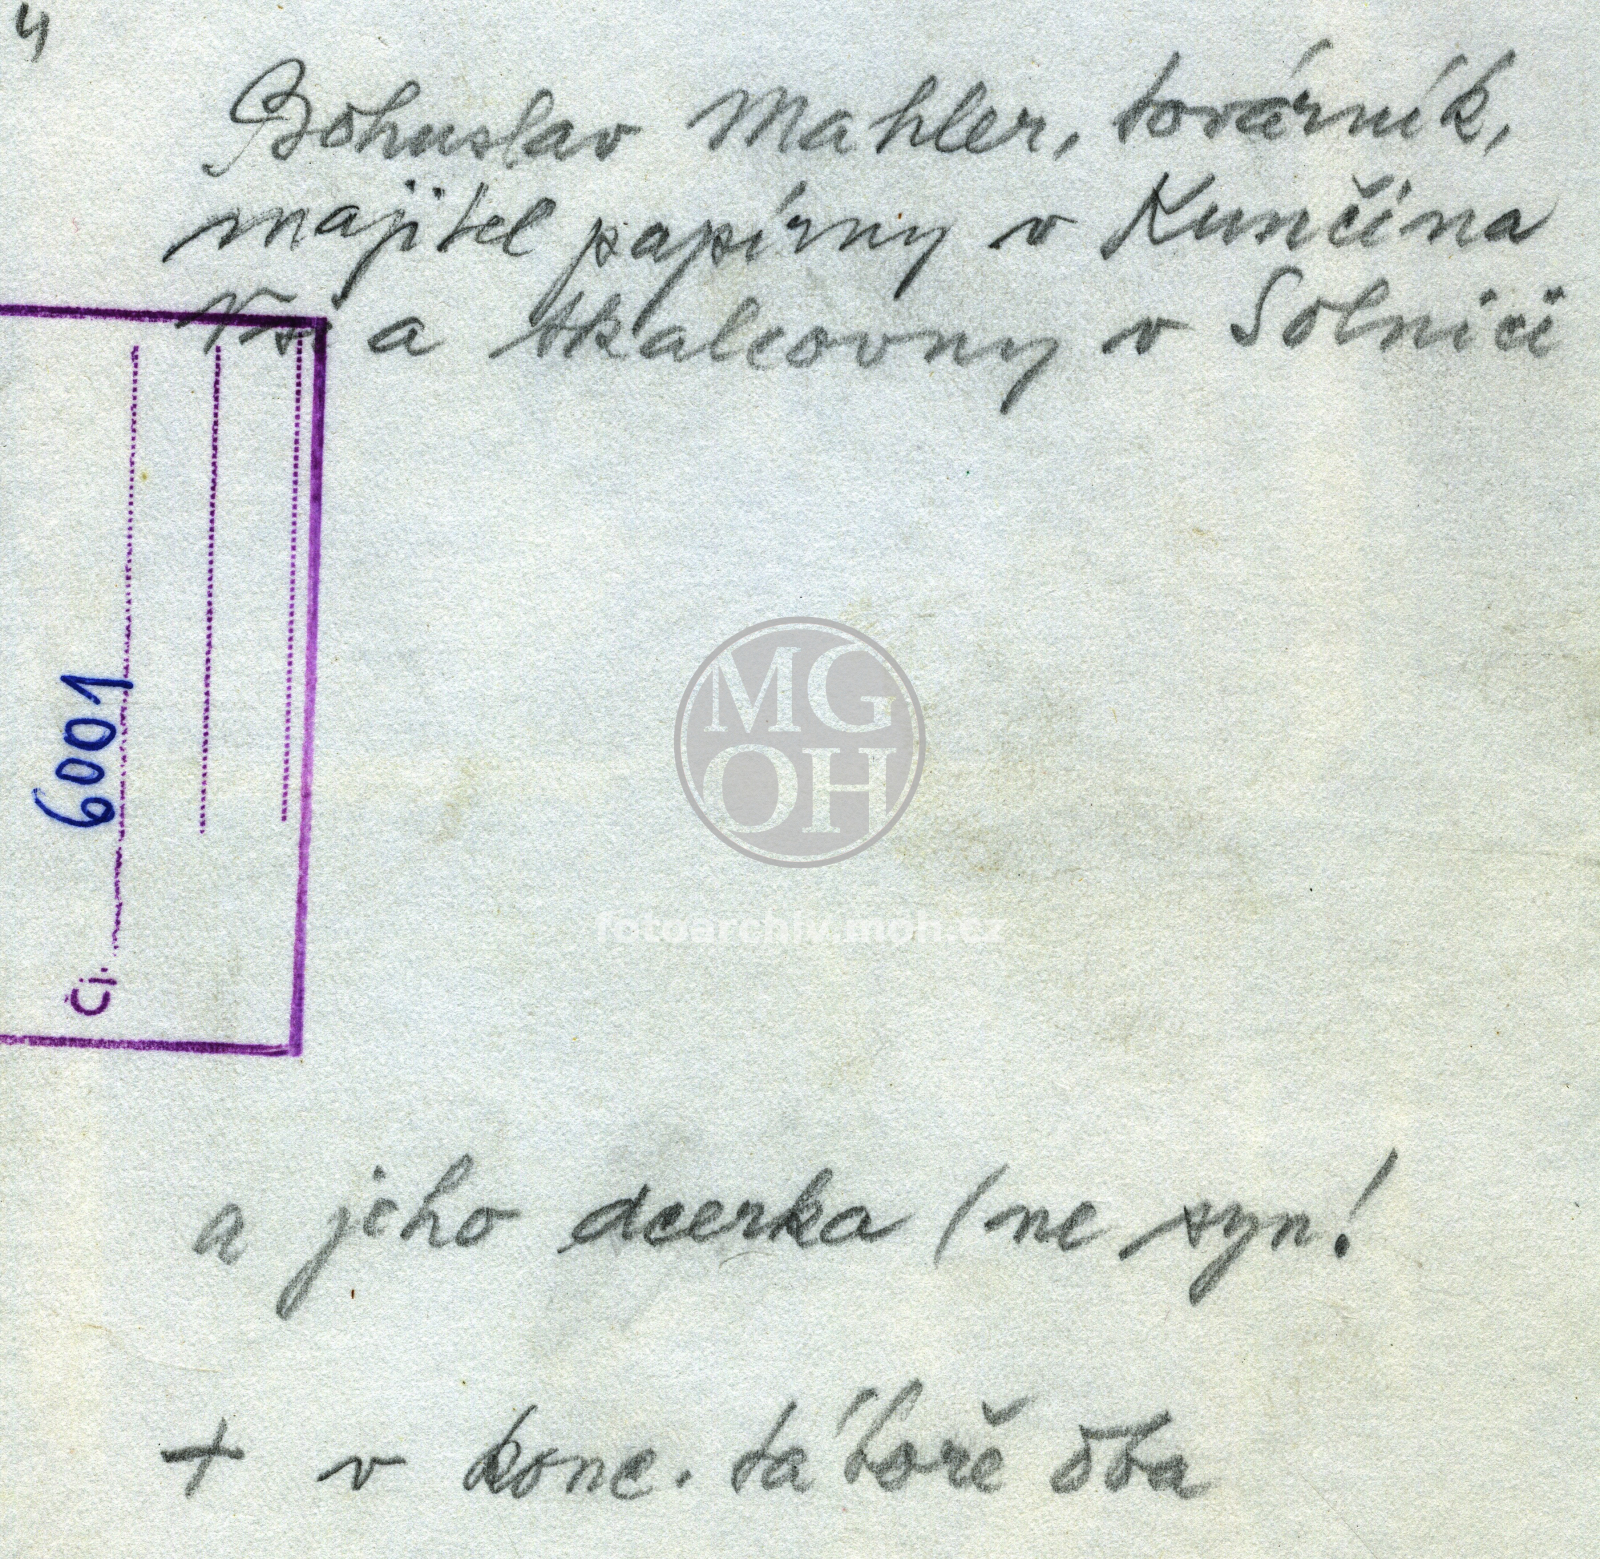 4
Bohuslav Mahler, továrník,
majitel papírny v Kunčina
Vsi a tkalcovny v Solnici
6001
Čj.
MG
OH
fotoarchiv.moh.cz
a jeho dcerka (ne syn!
+ v konc. táboře oba